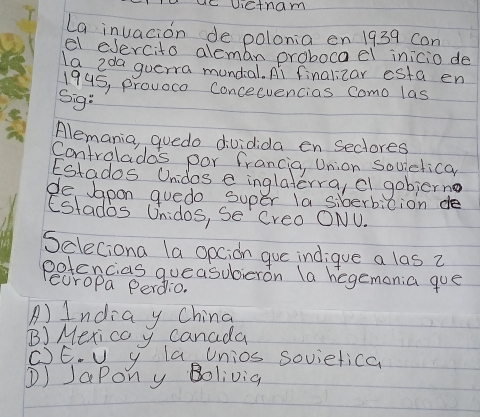 de Vietnam
La invación de polonia en 1939 con
el eJercito alemán proboca el inicio de
la 2da guerra mundial. Al finalizar esta en
1945, provoco concecuencias como las
sig:
Alemania, quedo dividida en sectores
Controlados por francia, Union Sovietica,
Estados Unidos e inglaterra, el gobierno
de Japon quedo super la siberbición de
Estados Unidos, Se Creo ONU.
Seleciona la opción que indique a las 2
potencias queasubierón la hegemonia que
europa Perdio.
A) India y China
B) Mexico y canada
C) E.U y la Unios sovietica
D) JaPon y Bolivia